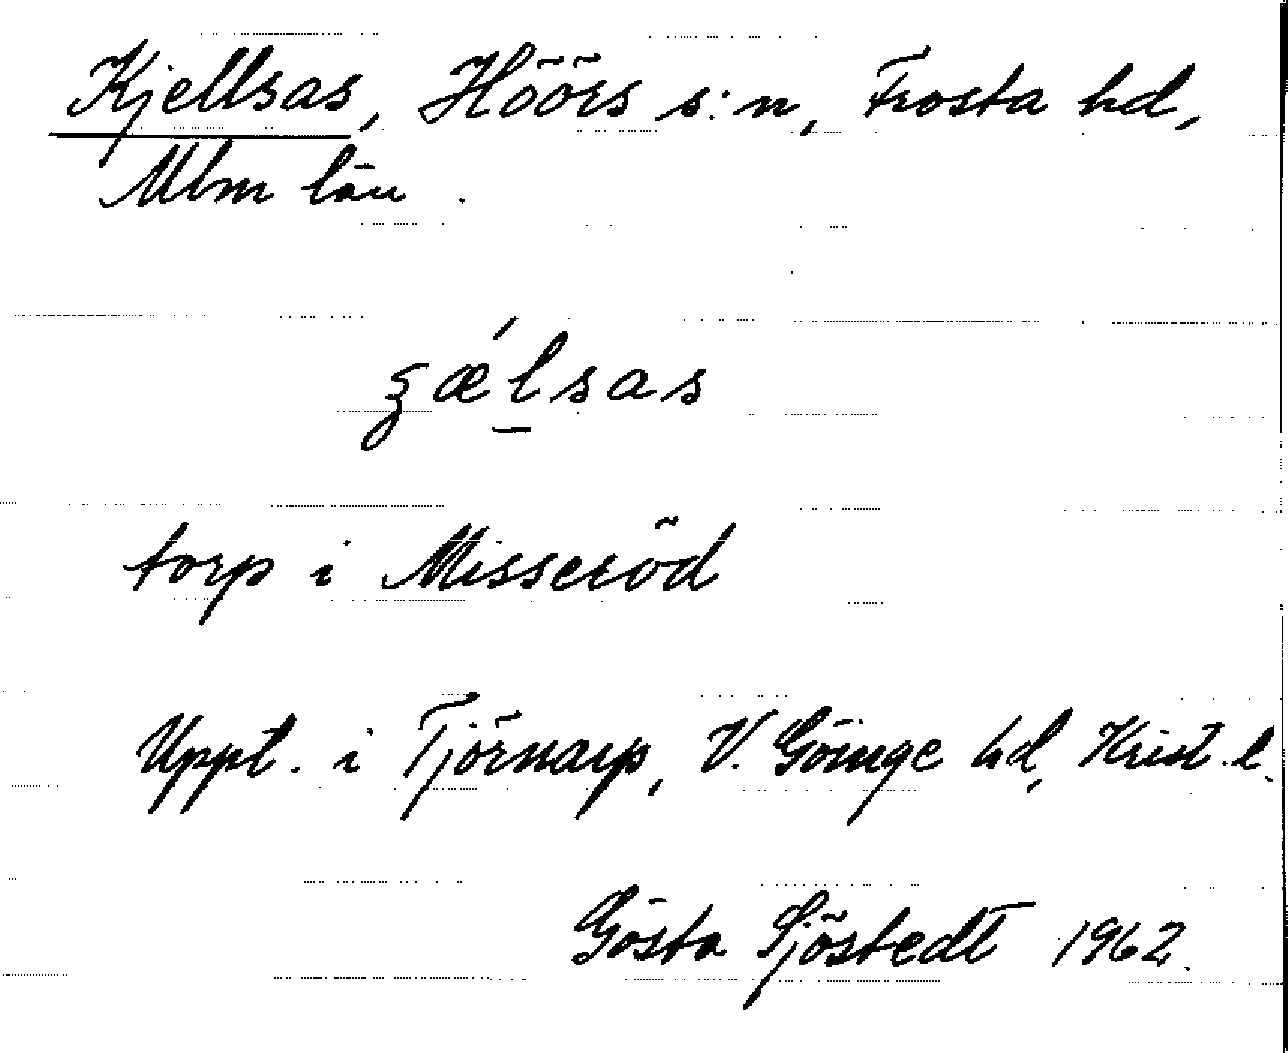 Kjellsas, Höörs s:n, Frosta hd,
Mlm län.
ʒǽl̲sas
torp i Misseröd
Uppt. i Tjörnarp, V. Göinge hd, Krist. l.
Gösta Sjöstedt 1962.